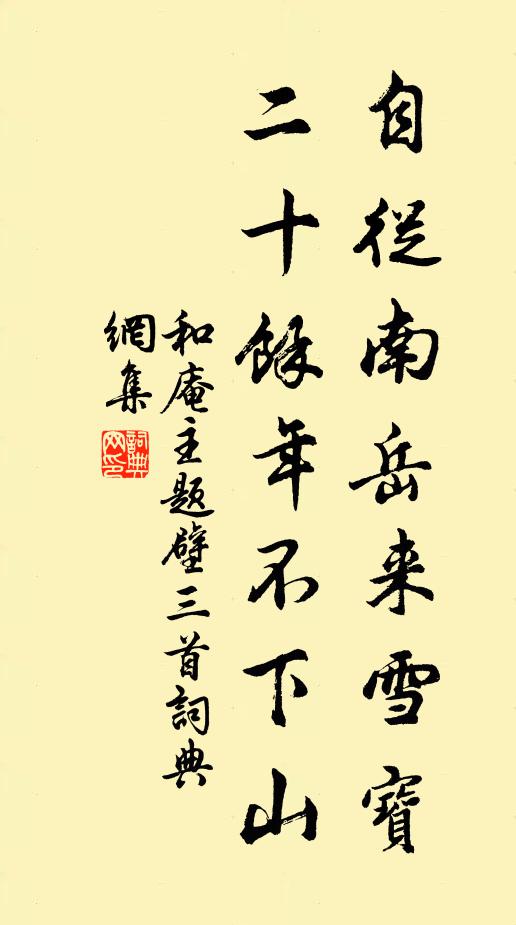 自從南岳来雪寶
二十餘年不下山
和庵主題壁三首詞典
網集
詞典
网印